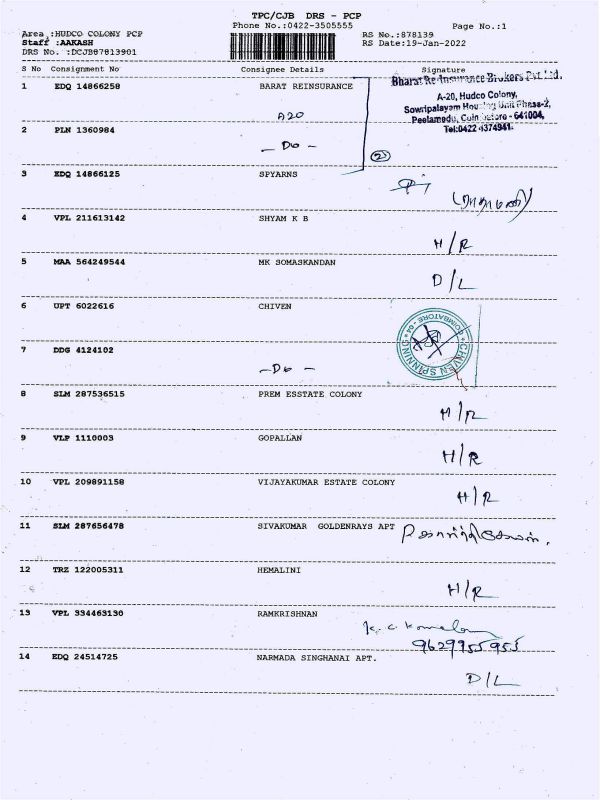 TPC/CJB DRS - PCP
Phone No.:0422-3505555
Page No.:1
Area :HUDCO COLONY PCP
RS No.:878139
Staff :AAKASH
RS Date:19-Jan-2022
DRS No. :DCJB87813901
S No Consignment No Consignee Details Signature
1 EDQ 14866258 BARAT REINSURANCE
A20
Bharat Re-Insurance Brokers Pvt. Ltd.
A-20, Hudco Colony,
Sowripalayam Housing Unit Phase-2,
Peelamedu, Coimbatore - 641004,
Tel:0422 4374941.
2 PLN 1360984
— Do —
②
3 EDQ 14866125 SPYARNS
4 VPL 211613142 SHYAM K B
H/R
5 MAA 564249544 MK SOMASKANDAN
D/L
6 UPT 6022616 CHIVEN
CHIVEN SPINNING
COIMBATORE - 04
7 DDG 4124102
— Do —
8 SLM 287536515 PREM ESSTATE COLONY
H/R
9 VLP 1110003 GOPALLAN
H/R
10 VPL 209891158 VIJAYAKUMAR ESTATE COLONY
H/R
11 SLM 287656478 SIVAKUMAR GOLDENRAYS APT
12 TRZ 122005311 HEMALINI
H/R
13 VPL 334463130 RAMKRISHNAN
9629955955
14 EDQ 24514725 NARMADA SINGHANAI APT.
D/L